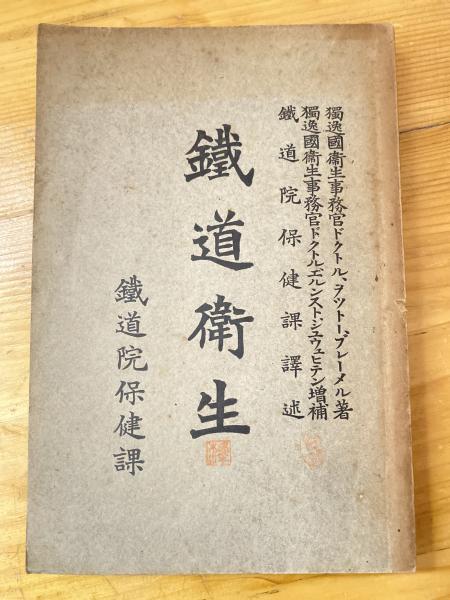 獨逸國衞生事務官ドクトル、ヲットー、ブレーメル著
獨逸國衞生事務官ドクトルエルンスト、シュウェヒテン増補
鐵道院保健課譯述
鐵道衛生
鐵道院保健課